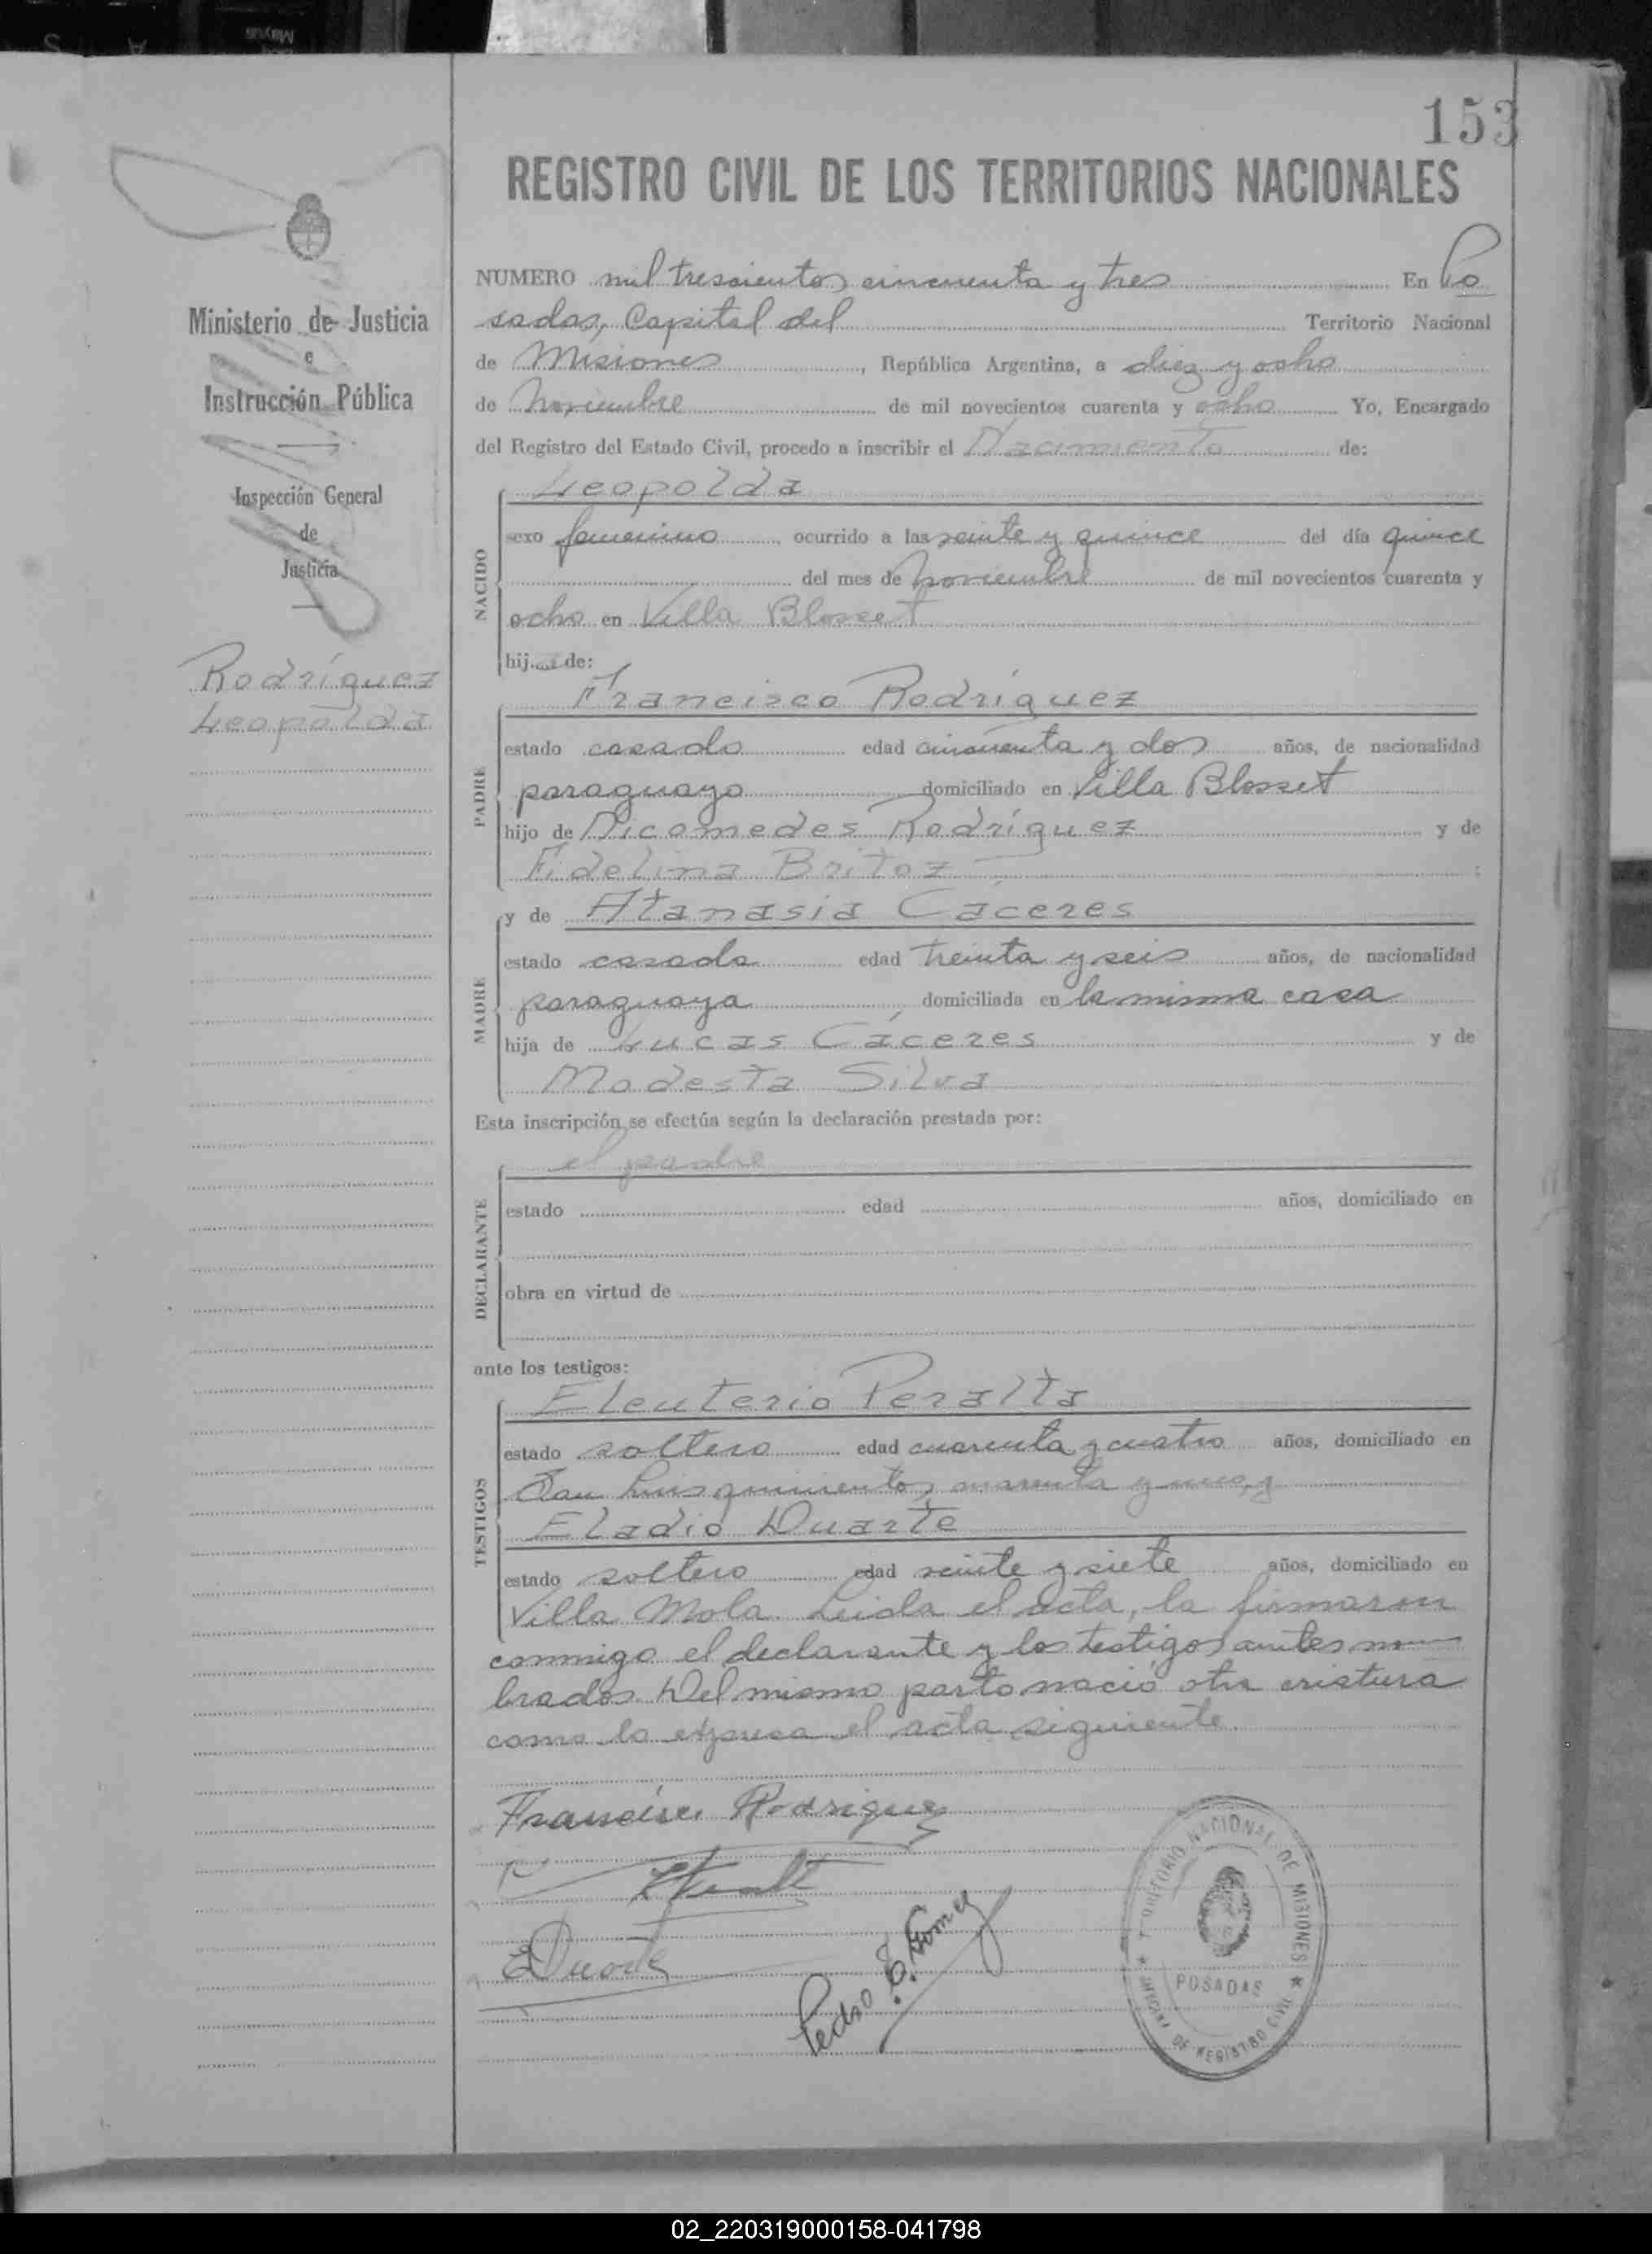 153
REGISTRO CIVIL DE LOS TERRITORIOS NACIONALES
Ministerio de Justicia
e
Instrucción Pública
Inspección General
de
Justicia
Rodríguez
Leopolda
NUMERO mil trescientos cincuenta y tres En Po
sadas, Capital del Territorio Nacional
de Misiones, República Argentina, a diez y ocho
de Noviembre de mil novecientos cuarenta y ocho Yo, Encargado
del Registro del Estado Civil, procedo a inscribir el Nacimiento de:
NACIDO
Leopolda
sexo femenino, ocurrido a las veinte y quince del día quince
del mes de noviembre de mil novecientos cuarenta y
ocho en Villa Blosset
hija de:
PADRE
Francisco Rodríguez
estado casado edad cincuenta y dos años, de nacionalidad
paraguayo domiciliado en Villa Blosset
hijo de Nicomedes Rodríguez y de
Fidelina Britoz ;
MADRE
y de Atanasia Cáceres
estado casada edad treinta y seis años, de nacionalidad
paraguaya, domiciliada en la misma casa
hija de Lucas Cáceres y de
Modesta Silva
Esta inscripción se efectúa según la declaración prestada por:
DECLARANTE
el padre
estado edad años, domiciliado en
obra en virtud de
ante los testigos:
TESTIGOS
Eleuterio Peralta
estado soltero edad cuarenta y cuatro años, domiciliado en
San Luis quinientos cuarenta y uno, y
Eladio Duarte
estado soltero edad veinte y siete años, domiciliado en
Villa Mola. Leida el acta, la firmaron
conmigo el declarante y los testigos antes nom
brados. Del mismo parto nació otra criatura
como lo expresa el acta siguiente.
Francisco Rodriguez
EDuarte
Pedro E. Gomez
TERRITORIO NACIONAL DE MISIONES
POSADAS
OFICINA DE REGISTRO CIVIL
02_220319000158-041798